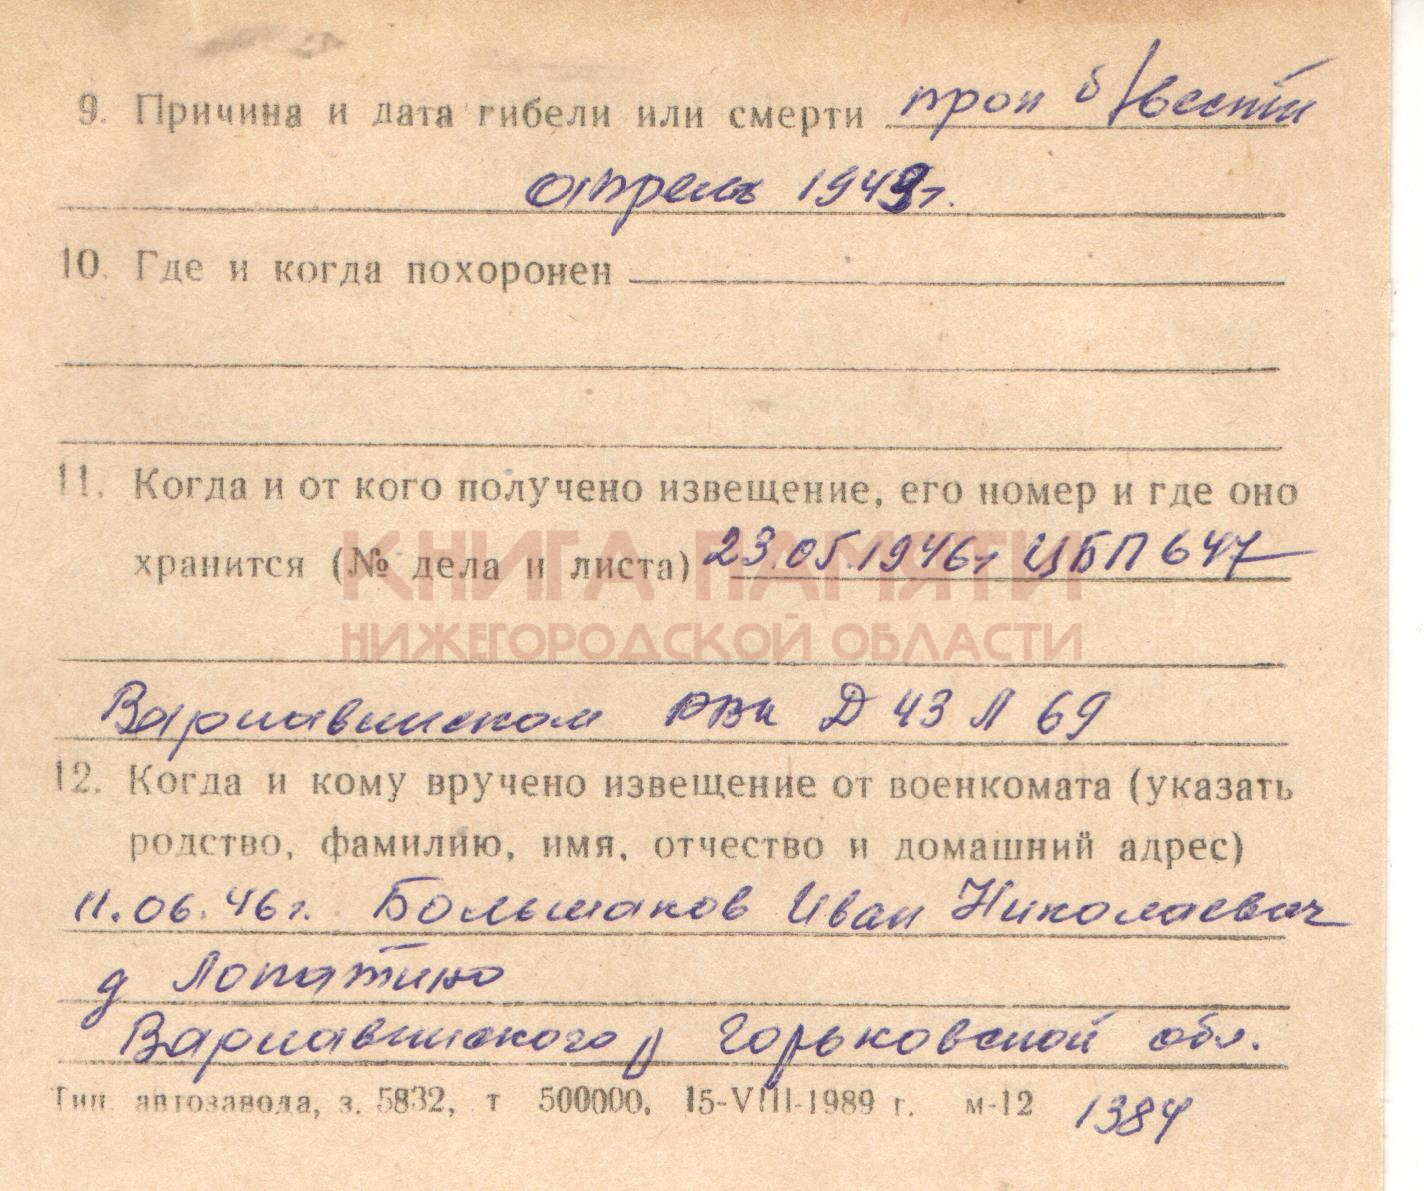 9. Причина и дата гибели или смерти проп б/вести
апрель 1943г.
10. Где и когда похоронен
11. Когда и от кого получено извещение, его номер и где оно
хранится (№ дела и листа) 23.05.1946г ЦБП 647
КНИГА ПАМЯТИ
НИЖЕГОРОДСКОЙ ОБЛАСТИ
Варнавинском РВК Д 43 Л 69
12. Когда и кому вручено извещение от военкомата (указать
родство, фамилию, имя, отчество и домашний адрес)
11.06.46г. Большаков Иван Николаевич
д Лопатино
Варнавинского р Горьковской обл.
Тип. автозавода, з. 5832, т 500000, 15-VIII-1989 г. м-12 1384